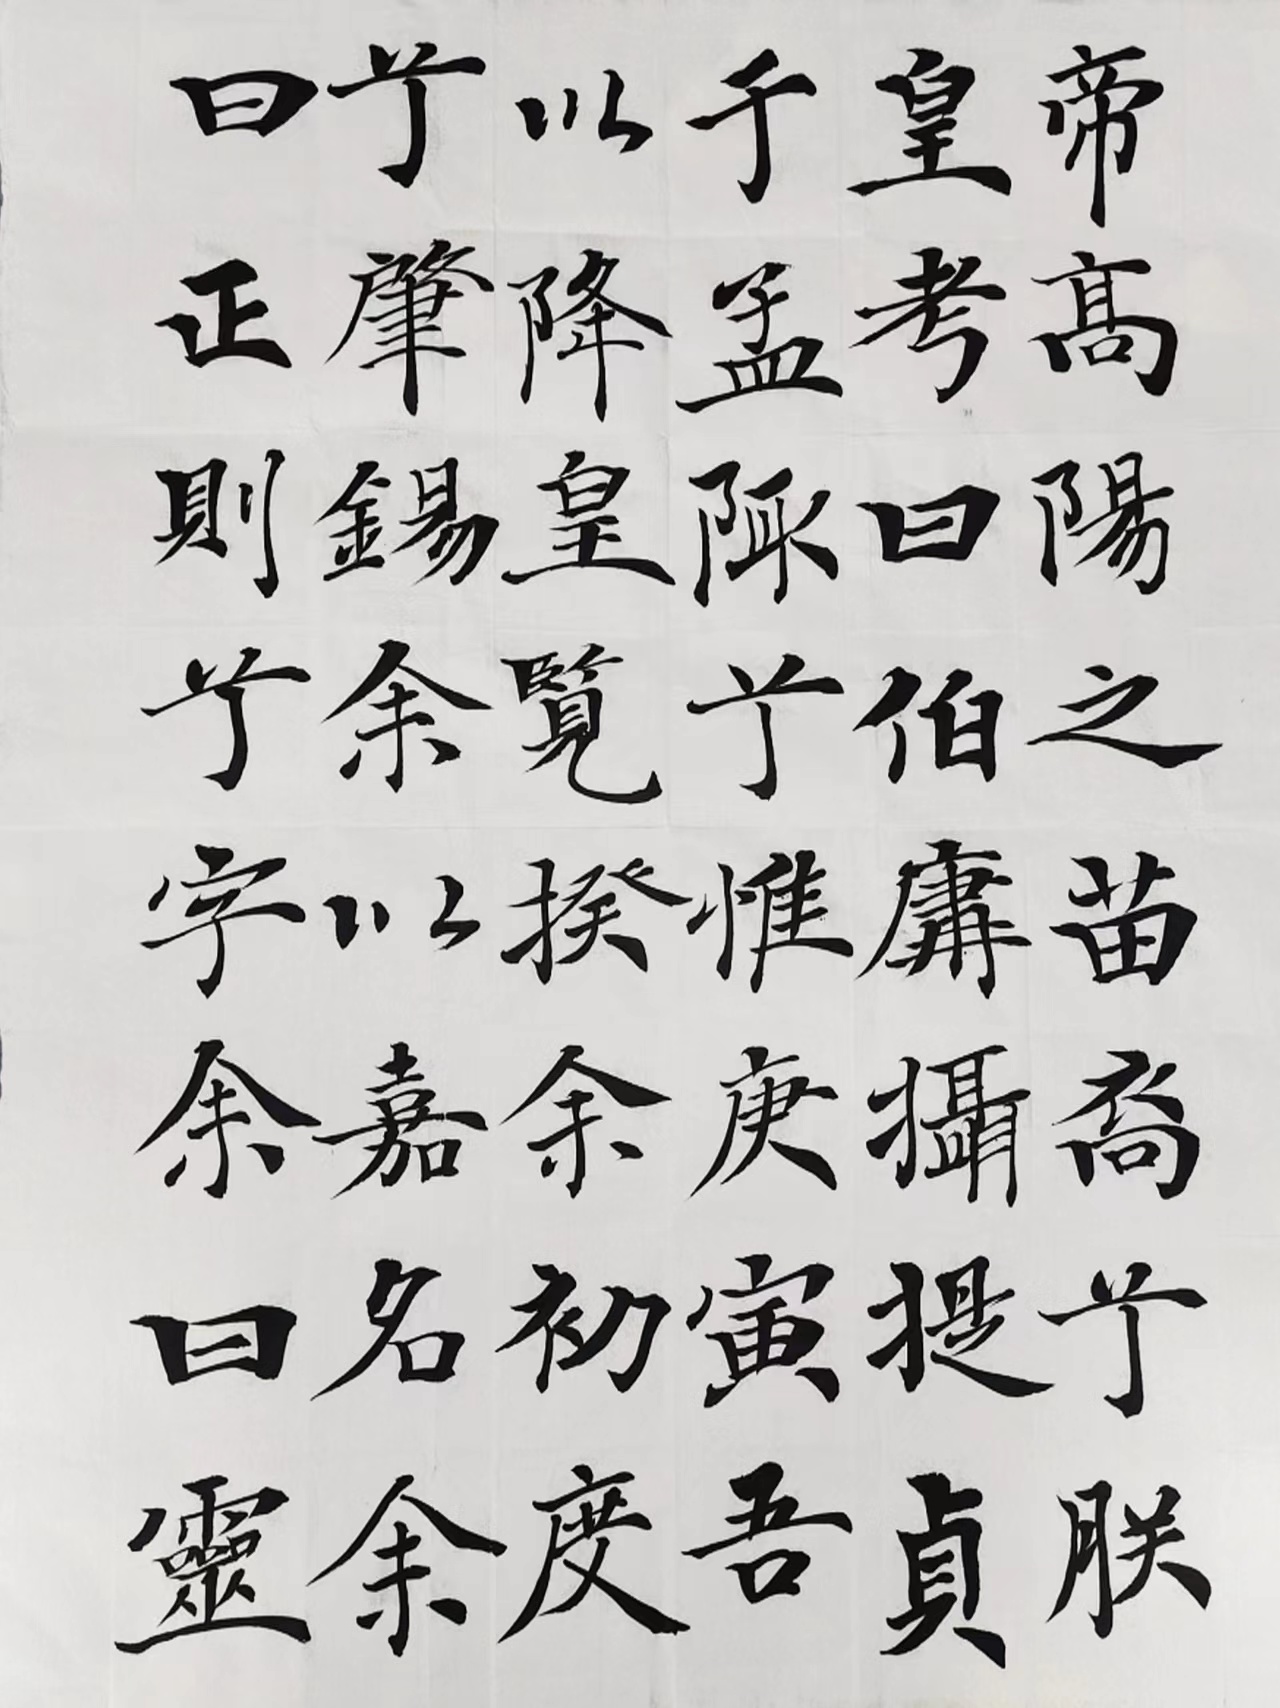 帝髙陽之苗裔兮朕
皇考曰伯庸攝提貞
于孟陬兮惟庚寅吾
以降皇覽揆余初度
兮肇錫余以嘉名余
曰正則兮字余曰靈